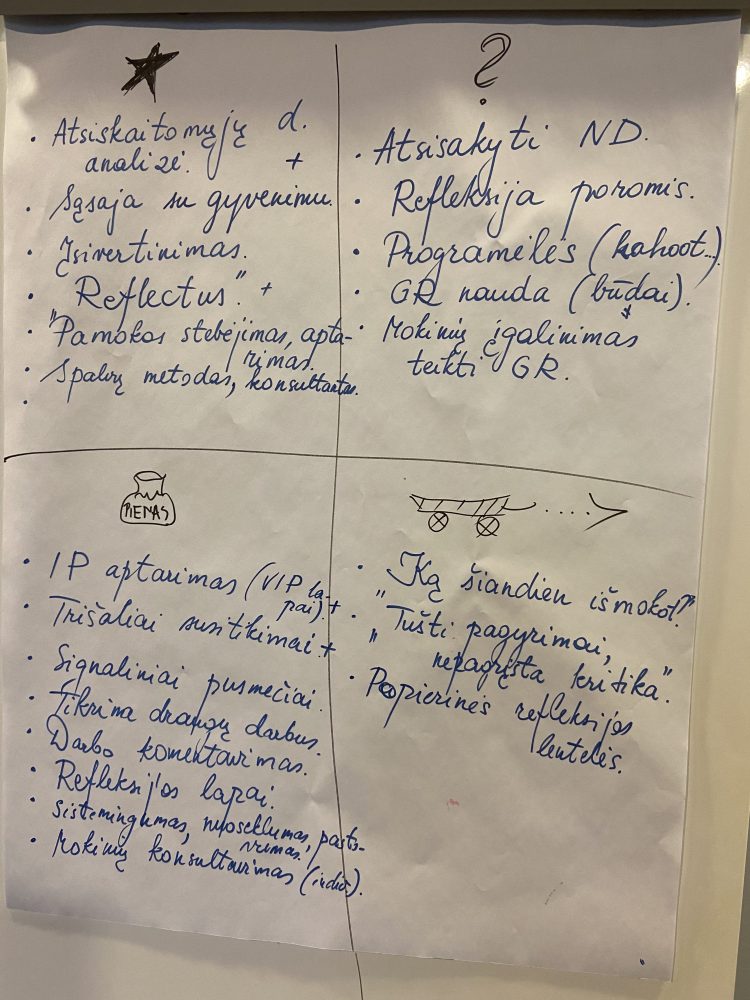 • Atsiskaitomųjų d.
analizė. +
• Sąsaja su gyvenimu.
• Įsivertinimas.
• "Reflectus". +
• Pamokos stebėjimas, apta-
rimas.
• Spalvų metodas, konsultantas.
•
?
• Atsisakyti ND.
• Refleksija poromis.
• Programėlės (kahoot...).
• GR nauda (būdai).
• Mokinių įgalinimas
teikti GR.
PIENAS
• IP aptarimas (VIP la-
pai). +
• Trišaliai susitikimai +
• Signaliniai pusmečiai.
• Tikrina draugų darbus.
• Darbo komentavimas.
• Refleksijos lapai.
• Sistemingumas, nuoseklumas,
• Mokinių konsultavimas (indiv.).
• "Ką šiandien išmokot?"
• "Tušti pagyrimai,
nepagrįsta kritika".
• Popierinės refleksijos
lentelės.